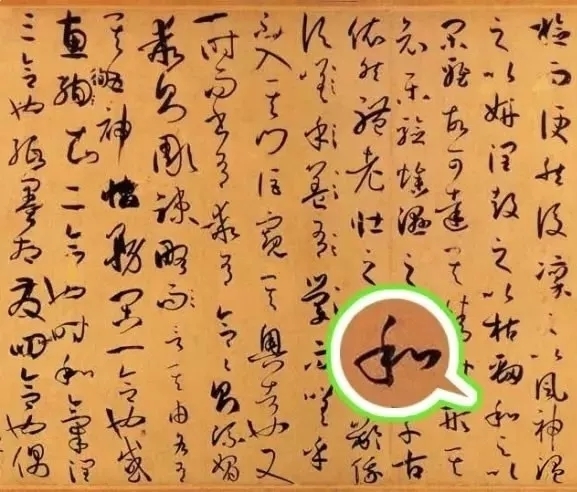 檢而便然後凜之以風神溫
之以妍潤鼓之以枯勁和之以
閑雅故可達其情性形其
哀樂驗燥濕之千古
依然體老壯之齡俄
嗟乎
不入其門詎窺其奧者也又
一時而書有乖有合合則流媚
乖則彫疎略而言其由各有
其五神怡務閑一合也感
惠徇知二合也時和氣潤
三合也紙墨相發四合也偶
和